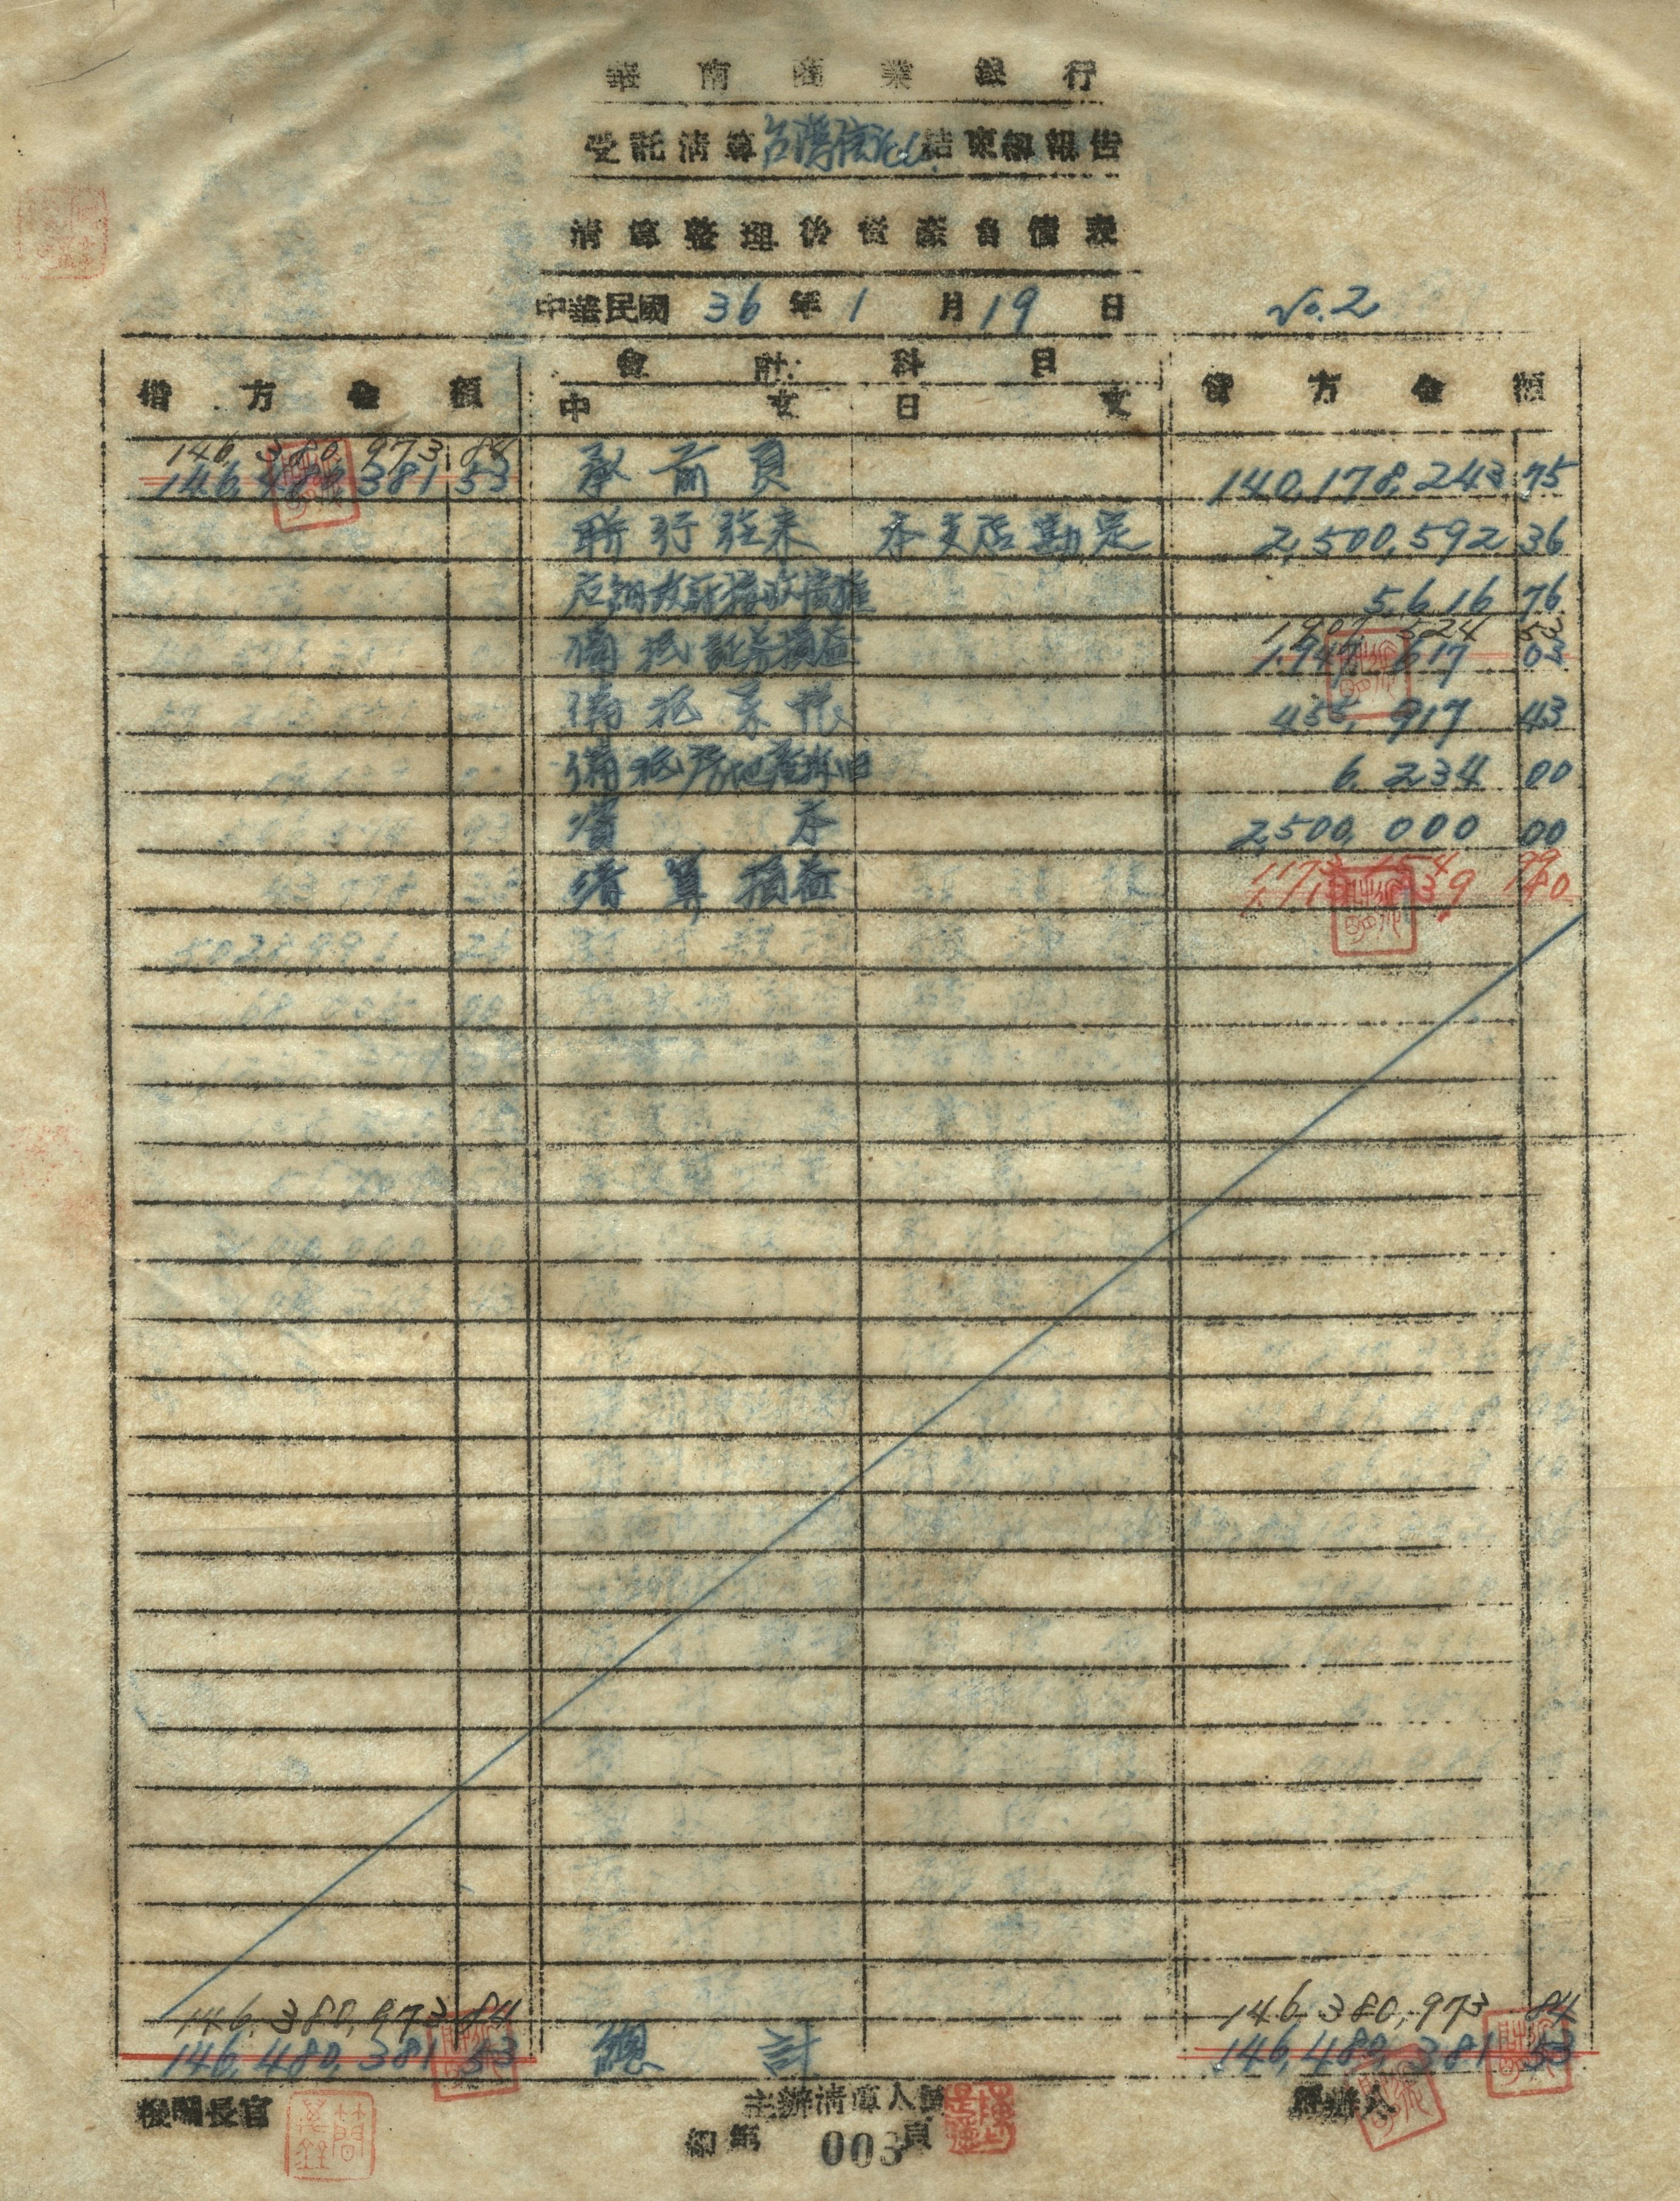 華南商業銀行
受託清算台灣信託結束總報告
清算整理後資產負債表
中華民國 36 年 1 月 19 日 No.2
借方金額 會計科目 貸方金額
中文 日文
146,380,973.84
146,480,381 53 承前頁 140,178,243.75
聯行往來 本支店勘定 2,500,592 36
5,616 76
1907 524 52
備抵証券損益 1,947,617 03
備抵呆帳 455,917 43
備抵房地產折旧 6,234 00
資本 2,500,000 00
清算損益
146,380,973 84 146,380,973 84
146,480,381 53 總計 146,480,381 53
機關長官 主辦清算人員 經辦人
第 003 頁